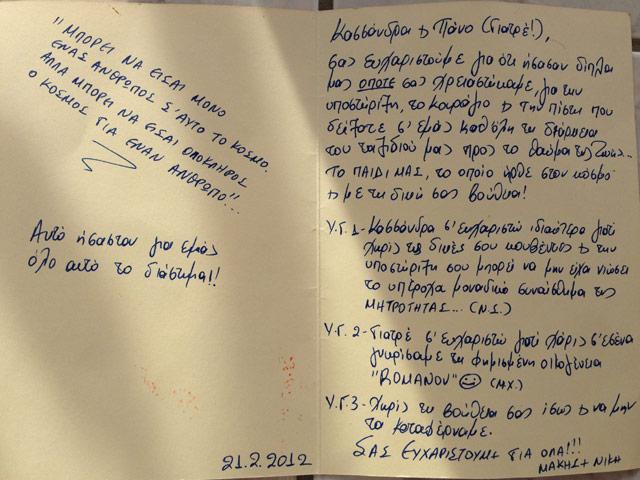 "ΜΠΟΡΕΙ ΝΑ ΕΙΣΑΙ ΜΟΝΟ
ΕΝΑΣ ΑΝΘΡΩΠΟΣ Σ' ΑΥΤΟ ΤΟ ΚΟΣΜΟ.
ΑΛΛΑ ΜΠΟΡΕΙ ΝΑ ΕΙΣΑΙ ΟΛΟΚΛΗΡΟΣ
Ο ΚΟΣΜΟΣ ΓΙΑ ΕΝΑΝ ΑΝΘΡΩΠΟ"...
Αυτό ήσασταν για εμάς
όλο αυτό το διάστημα!!
21.2.2012
Κασσάνδρα & Πάνο (Γιατρέ!),
σας ευχαριστούμε για ότι ήσασαν δίπλα
μας όποτε σας χρειαστήκαμε, για την
υποστήριξη, το κουράγιο & την πίστη που
δείξατε σ' εμάς καθ'όλη τη διάρκεια
του ταξιδιού μας προς το θαύμα της ζωής...
ΤΟ ΠΑΙΔΙ ΜΑΣ, το οποίο ήρθε στον κόσμο
& με τη δική σας βοήθεια!
Υ.Γ. 1 - Κασσάνδρα σ' ευχαριστώ ιδιαίτερα γιατί
χωρίς τις δικές σου κουβέντες & την
υποστήριξη σου μπορεί να μην είχα νιώσει
το υπέροχο μοναδικό συναίσθημα της
ΜΗΤΡΟΤΗΤΑΣ... (Ν.Σ.)
Υ.Γ. 2 - Γιατρέ σ' ευχαριστώ γιατί χάρις σ'εσένα
γνωρίσαμε τη φημισμένη οικογένεια
"ROMANOV" ☺ (Μ.Χ.)
Υ.Γ. 3 - Χωρίς τη βοήθεια σας ίσως & να μην
τα καταφέρναμε.
ΣΑΣ ΕΥΧΑΡΙΣΤΟΥΜΕ ΓΙΑ ΟΛΑ!!!
ΜΑΚΗΣ + ΝΙΚΗ